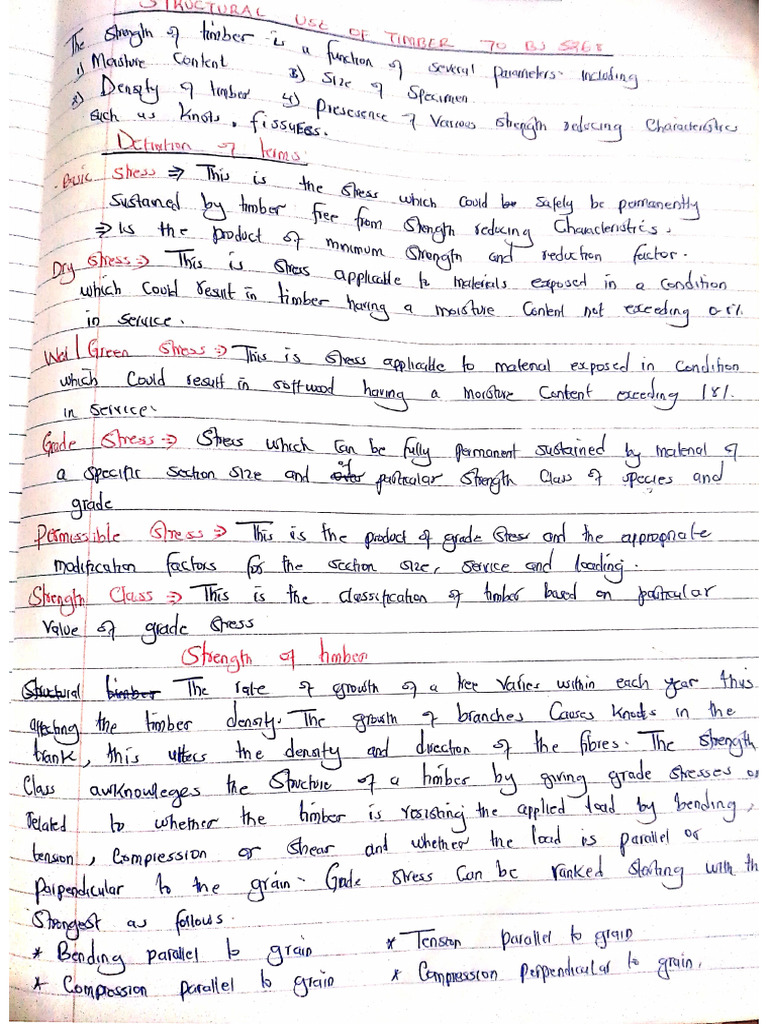 STRUCTURAL USE OF TIMBER TO BS 5268
The strength of timber is a function of several parameters. including
1) Moisture Content 3) Size of Specimen
2) Density of timber 4) Presesence of Various strength reducing Characteristics
such as knots, fissures.
Definition of terms
Basic stress ⇒ This is the stress which could be safely be permanently
sustained by timber free from strength reducing Characteristics.
⇒ Is the product of minimum strength and reduction factor.
Dry stress ⇒ This is stress applicable to materials exposed in a condition
which could result in timber having a moisture Content not exceeding
in service.
Wet/Green stress ⇒ This is stress applicable to material exposed in condition
which Could result in softwood having a moisture Content exceeding 18%.
in service.
Grade Stress ⇒ Stress which can be fully permanent sustained by material of
a specific section size and of particular strength class of species and
grade
Permissible stress ⇒ This is the product of grade stress and the appropriate
modification factors for the section size, service and loading.
Strength Class ⇒ This is the classification of timber based on particular
value of grade stress
Strength of timber
Structural timber The rate of growth of a tree varies within each year thus
affecting the timber density. The growth of branches Causes knots in the
trank, this the density and direction of the fibres. The strength
Class awknowleges the structure of a timber by giving grade stresses or
related to whether the timber is resisting the applied load by bending,
tension, Compression or shear and whether the load is parallel or
paipendicular to the grain. Grade stress can be ranked starting with th
strongest as follows.
* Bending parallel to grain * Tension parallel to grain
* Compression parallel to grain * Compression perpendicular to grain.